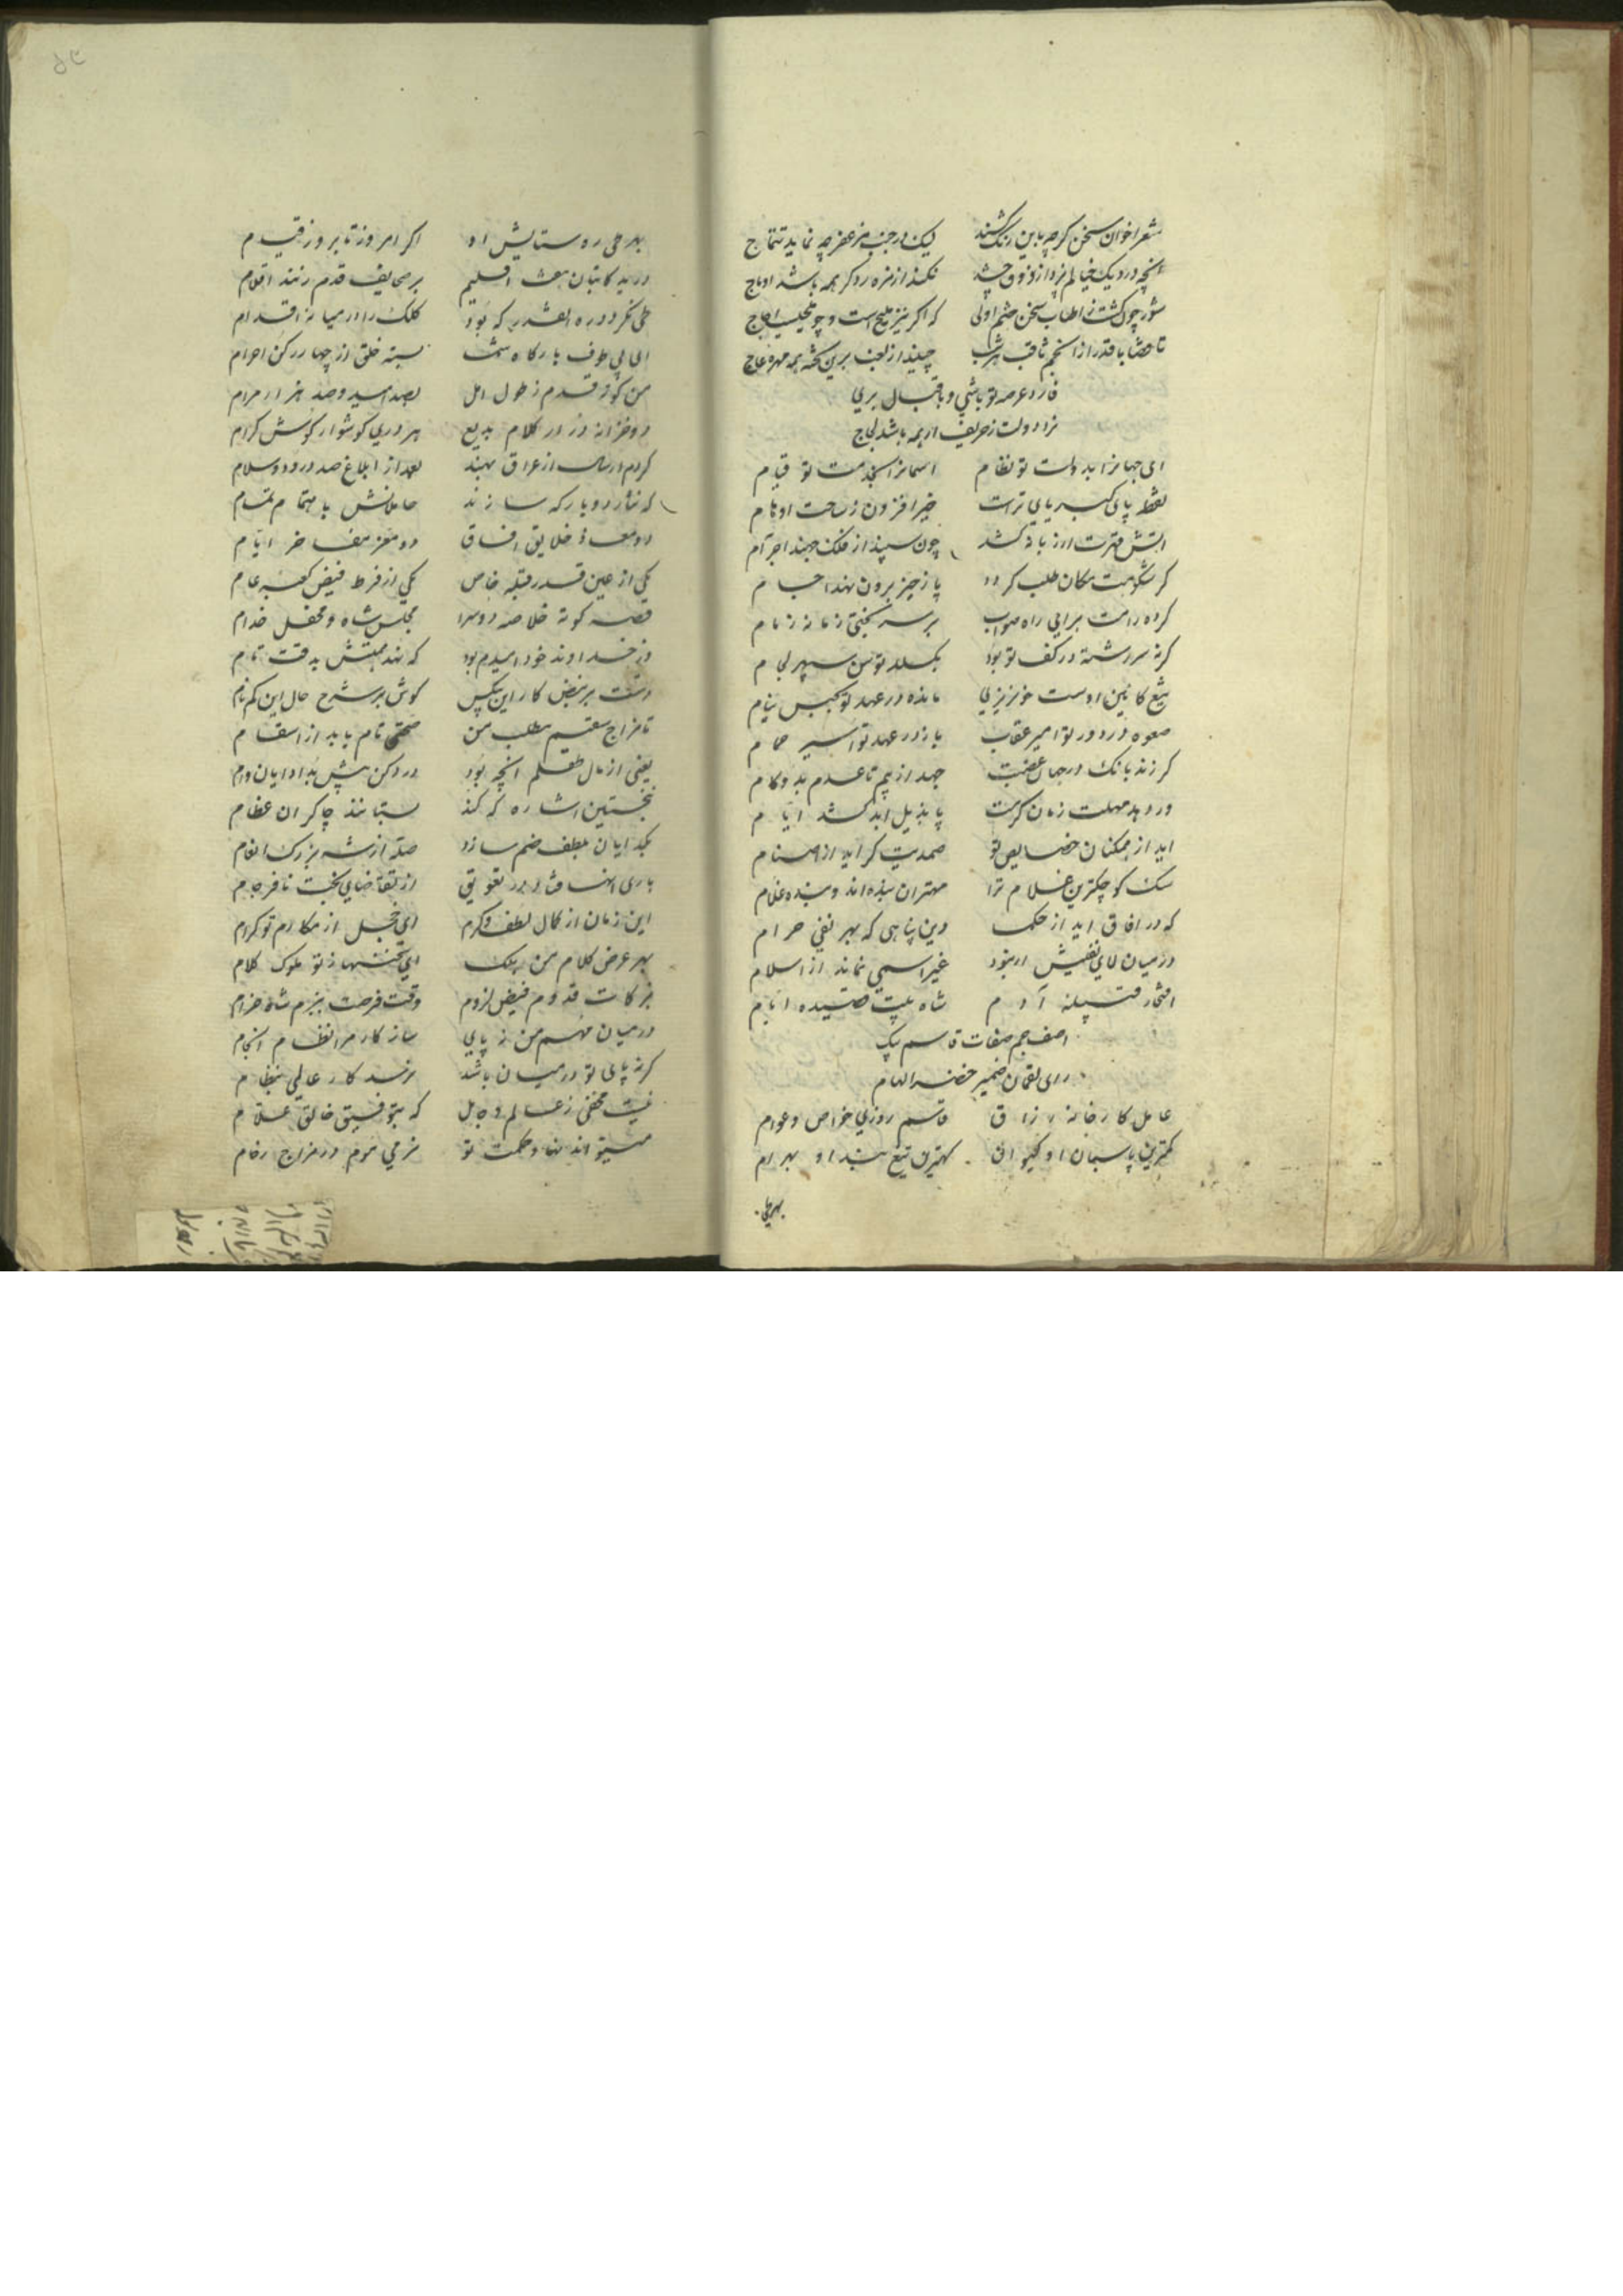 شعرا خوان سخن کرچه باین رنک کشند لیک در جنب مزعفر چه نماید تتماج
انچه در دیک خیالم پزد از ذوق چشد نکند از مزه رد کر همه باشد اوماج
شور چون کشت ز اطناب سخن ختم اولی که اکر نیز ملیح است
تا قضا با قدر از انجم ثاقب هر شب چیند از لعب برین تخته همه مهره عاج
عرصه تو باشی و باقبال بری
نراد دولت ز حریف ار همه باشد لجاج
ای جهانرا بدولت تو نظام اسمانرا بخدمت تو قیام
نقطه پای کبریای تراست خیر افزون ز ساحت اوهام
اتش قهرت ار زبانه کشد چون سپند از فلک جهند اجرام
کر شکوهت مکان طلب کردد پا ز حیز برون نهند اجسام
کرده رامت برایی راه صواب بر سر بختی زمانه زمام
کرنه سررشته در کف تو بود بکسلد توسن سپهر لجام
تیغ کائین اوست خونریزی مانده در عهد تو بحبس نیام
صعوه در دور تو امیر عقاب باز در عهد تو اسیر حمام
کر زند بانک در جهان غضبت جهد از بیم تا عدم بدو کام
ور دهد مهلت زمان کرمت پا بذیل ابد کشد ایام
اید از ممکنان خصایص تو صمدیت کر اید از اصنام
سک کوچکترین غلام ترا مهتران بنده اند و بنده غلام
که در افاق اید از حکمت دین پناهی که بهر نفی حرام
در میان لای نفیش ار نبود غیر اسمی نماند از اسلام
افتخار قبیله آدم شاه بیت قصیده ایام
اصف جم صفات قاسم بیک
رای لقمان ضمیر خضر الهام
عامل کارخانه رزاق قاسم روزی خواص و عوام
کمترین پاسبان او کیوان کهترین تیغ بند او بهرام
بهر طی
بهر طی ره ستایش او اکر امروز تا بروز قیام
در ید کاتبان هفت اقلیم بر صحایف قدم زنند اقلام
طی نکردد ره انقدر که بود کلک را در میانه اقدام
ای پی طوف بارکاه سمت بسته خلق از چهار رکن احرام
من کوته قدم ز طول امل بصد امید و صد هزار مرام
دو خزانه ز در کلام بدیع هر دری کوشوار کوش کرام
کردم ارسال از عراق بهند بعد از ابلاغ صد درود و سلام
که نثار دو بارکه سازند حاملانش باهتمام تمام
دو معاذ خلایق افاق دو معز مفاخر ایام
یکی از عین قدر قبله خاص یکی از فرط فیض کعبه عام
قصه کوته خلاصه دو سرا مجلس شاه و محفل خدام
وز خداوند خود امیدم بود که نهد همتش بدقت تام
دست بر نبض کار این بیکس کوش بر شرح حال این کم نام
تا مزاج سقیم مطلب من صحتی تام یابد از اسقام
یعنی از مال انچه بود در دکن پیش بد ادایان وام
نخستین اشاره که کند بستانند چاکران عظام
بکد ایان بلطف ضم سازد صله از شه بزرک انعام
باری انها فتاد در تعویق از تقاضای بخت نافرجام
این زمان از کمال لطف و کرم ای خجل از مکارم تو کرام
بهر عرض کلام من بملک ای سخنها ز تو ملوک کلام
برکات قدوم فیض لزوم وقت فرصت ببزم شاه خرام
در میان مهم من نه پایی ساز کار مرا نظام انجام
کر نه پای تو در میان باشد نرسد کار عالمی بنظام
نیست مخفی ز عالم و جاهل که بتوفیق خالق علام
میتواند نهاد حکمت تو نرمی موم در مزاج رخام